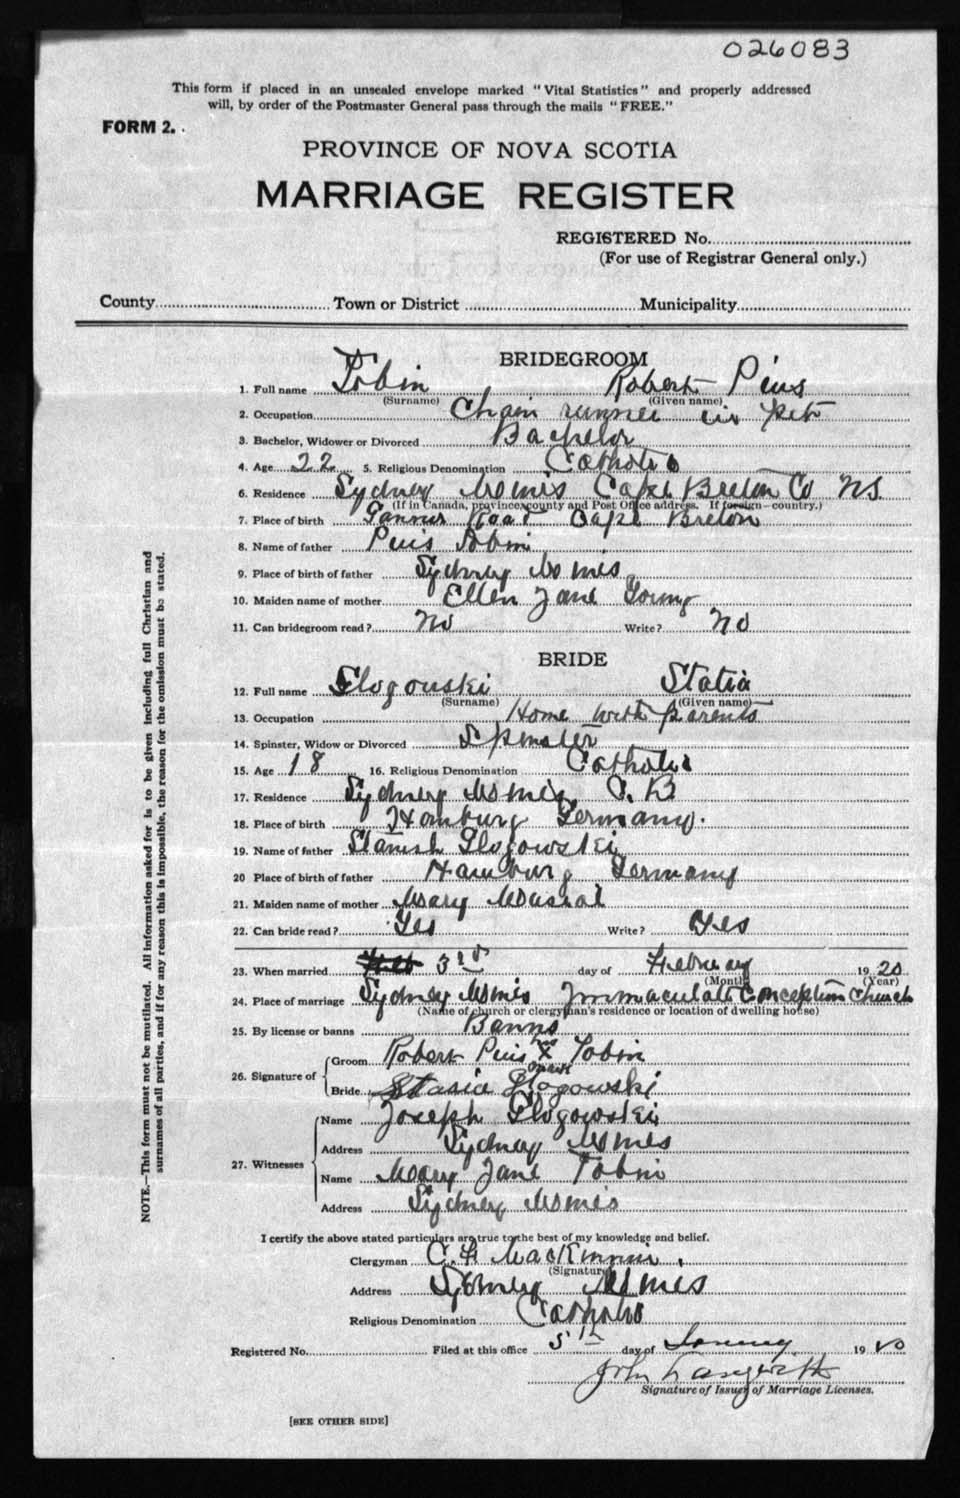 026083
This form if placed in an unsealed envelope marked "Vital Statistics" and properly addressed
will, by order of the Postmaster General pass through the mails "FREE."
FORM 2.
PROVINCE OF NOVA SCOTIA
MARRIAGE REGISTER
REGISTERED No.
(For use of Registrar General only.)
County Town or District Municipality
BRIDEGROOM
1. Full name Tobin Robert Pius
(Surname) (Given name)
2. Occupation Chain runner in Pit
3. Bachelor, Widower or Divorced Bachelor
4. Age 22 5. Religious Denomination Catholic
6. Residence Sydney Mines Cape Breton Co NS.
(If in Canada, province, county and Post Office address. If foreign—country.)
7. Place of birth Road Cape Breton
8. Name of father Pius Tobin
9. Place of birth of father Sydney Mines
10. Maiden name of mother Ellen Jane Young
11. Can bridegroom read? No Write? No
BRIDE
12. Full name Glogouski Statia
(Surname) (Given name)
13. Occupation Home with parents
14. Spinster, Widow or Divorced Spinster
15. Age 18 16. Religious Denomination Catholic
17. Residence Sydney Mines, C. B
18. Place of birth Hamburg Germany.
19. Name of father Glogowski
20 Place of birth of father Hamburg Germany
21. Maiden name of mother Mary
22. Can bride read? Yes Write? Yes
23. When married 3rd day of February 1920
(Month) (Year)
24. Place of marriage Sydney Mines Immaculate Conception Church
(Name of church or clergyman's residence or location of dwelling house)
25. By license or banns Banns
26. Signature of Groom Robert Pius his X mark Tobin
Bride Stasia Glogowski
27. Witnesses Name Joseph Glogowski
Address Sydney Mines
Name Mary Jane Tobin
Address Sydney Mines
I certify the above stated particulars are true to the best of my knowledge and belief.
Clergyman C. F. MacKinnon
(Signature)
Address Sydney Mines
Religious Denomination Catholic
Registered No. Filed at this office 5th day of 1920
John
Signature of Issuer of Marriage Licenses.
[SEE OTHER SIDE]
NOTE.—This form must not be mutilated. All information asked for is to be given including full Christian and
surnames of all parties, and if for any reason this is impossible, the reason for the omission must be stated.